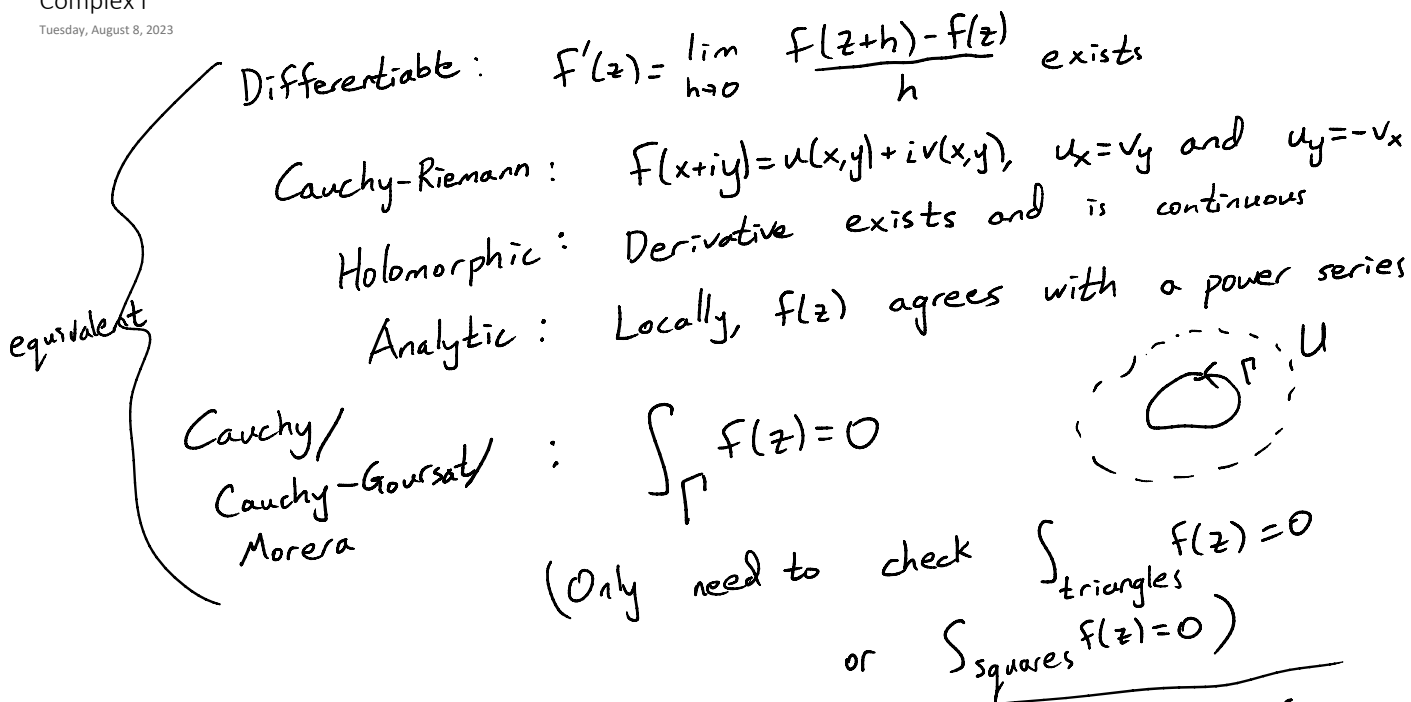 Complex 1
Tuesday, August 8, 2023
Differentiable: f'(z) = lim h→0 f(z+h)-f(z) / h exists
Cauchy-Riemann: f(x+iy)=u(x,y)+iv(x,y), u_x=v_y and u_y=-v_x
Holomorphic: Derivative exists and is continuous
Analytic: Locally, f(z) agrees with a power series
equivalent
U
Γ
Cauchy/
Cauchy-Goursat/ : ∫_Γ f(z)=0
Morera
(Only need to check ∫_triangles f(z)=0
or ∫_squares f(z)=0)